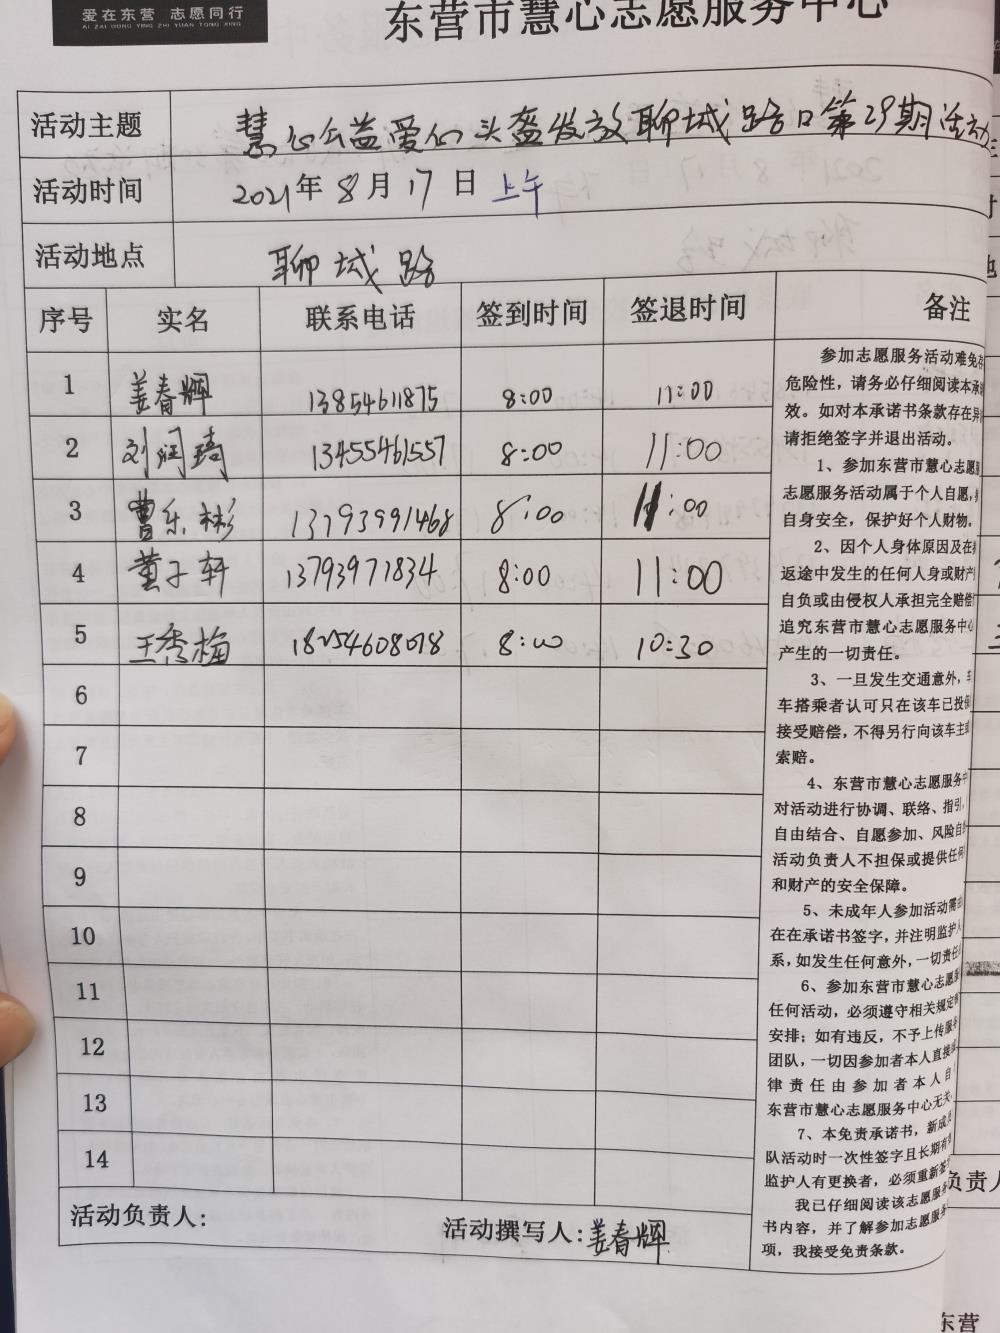 爱在东营 志愿同行
AI ZAI DONG YING ZHI YUAN TONG XING
东营市慧心志愿服务中心
活动主题 慧心公益爱心头盔发放聊城路口第29期活动
活动时间 2021年8月17日 上午
活动地点 聊城路
序号 实名 联系电话 签到时间 签退时间 备注
1 姜春辉 13854611875 8:00 11:00
2 刘润琦 13455461557 8:00 11:00
3 曹乐彬 13793991468 8:00 11:00
4 董子轩 13793971834 8:00 11:00
5 王秀梅 18254608018 8:00 10:30
6
7
8
9
10
11
12
13
14
参加志愿服务活动难免
危险性，请务必仔细阅读本承
效。如对本承诺书条款存在异
请拒绝签字并退出活动。
1、参加东营市慧心志愿
志愿服务活动属于个人自愿，
自身安全，保护好个人财物。
2、因个人身体原因及在
返途中发生的任何人身或财产
自负或由侵权人承担完全赔偿
追究东营市慧心志愿服务中心
产生的一切责任。
3、一旦发生交通意外，车
车搭乘者认可只在该车已投保
接受赔偿，不得另行向该车主或
索赔。
4、东营市慧心志愿服务中
对活动进行协调、联络、指引，
自由结合、自愿参加、风险自
活动负责人不担保或提供任何
和财产的安全保障。
5、未成年人参加活动需
在在承诺书签字，并注明监护人
系，如发生任何意外，一切责任
6、参加东营市慧心志愿服
任何活动，必须遵守相关规定
安排；如有违反，不予上传服
团队，一切因参加者本人直接
律责任由参加者本人自
东营市慧心志愿服务中心无关。
7、本免责承诺书，新成员
队活动时一次性签字且长期有
监护人有更换者，必须重新签
我已仔细阅读该志愿服务
书内容，并了解参加志愿服务
项，我接受免责条款。
活动负责人： 活动撰写人：姜春辉
负责人
东营